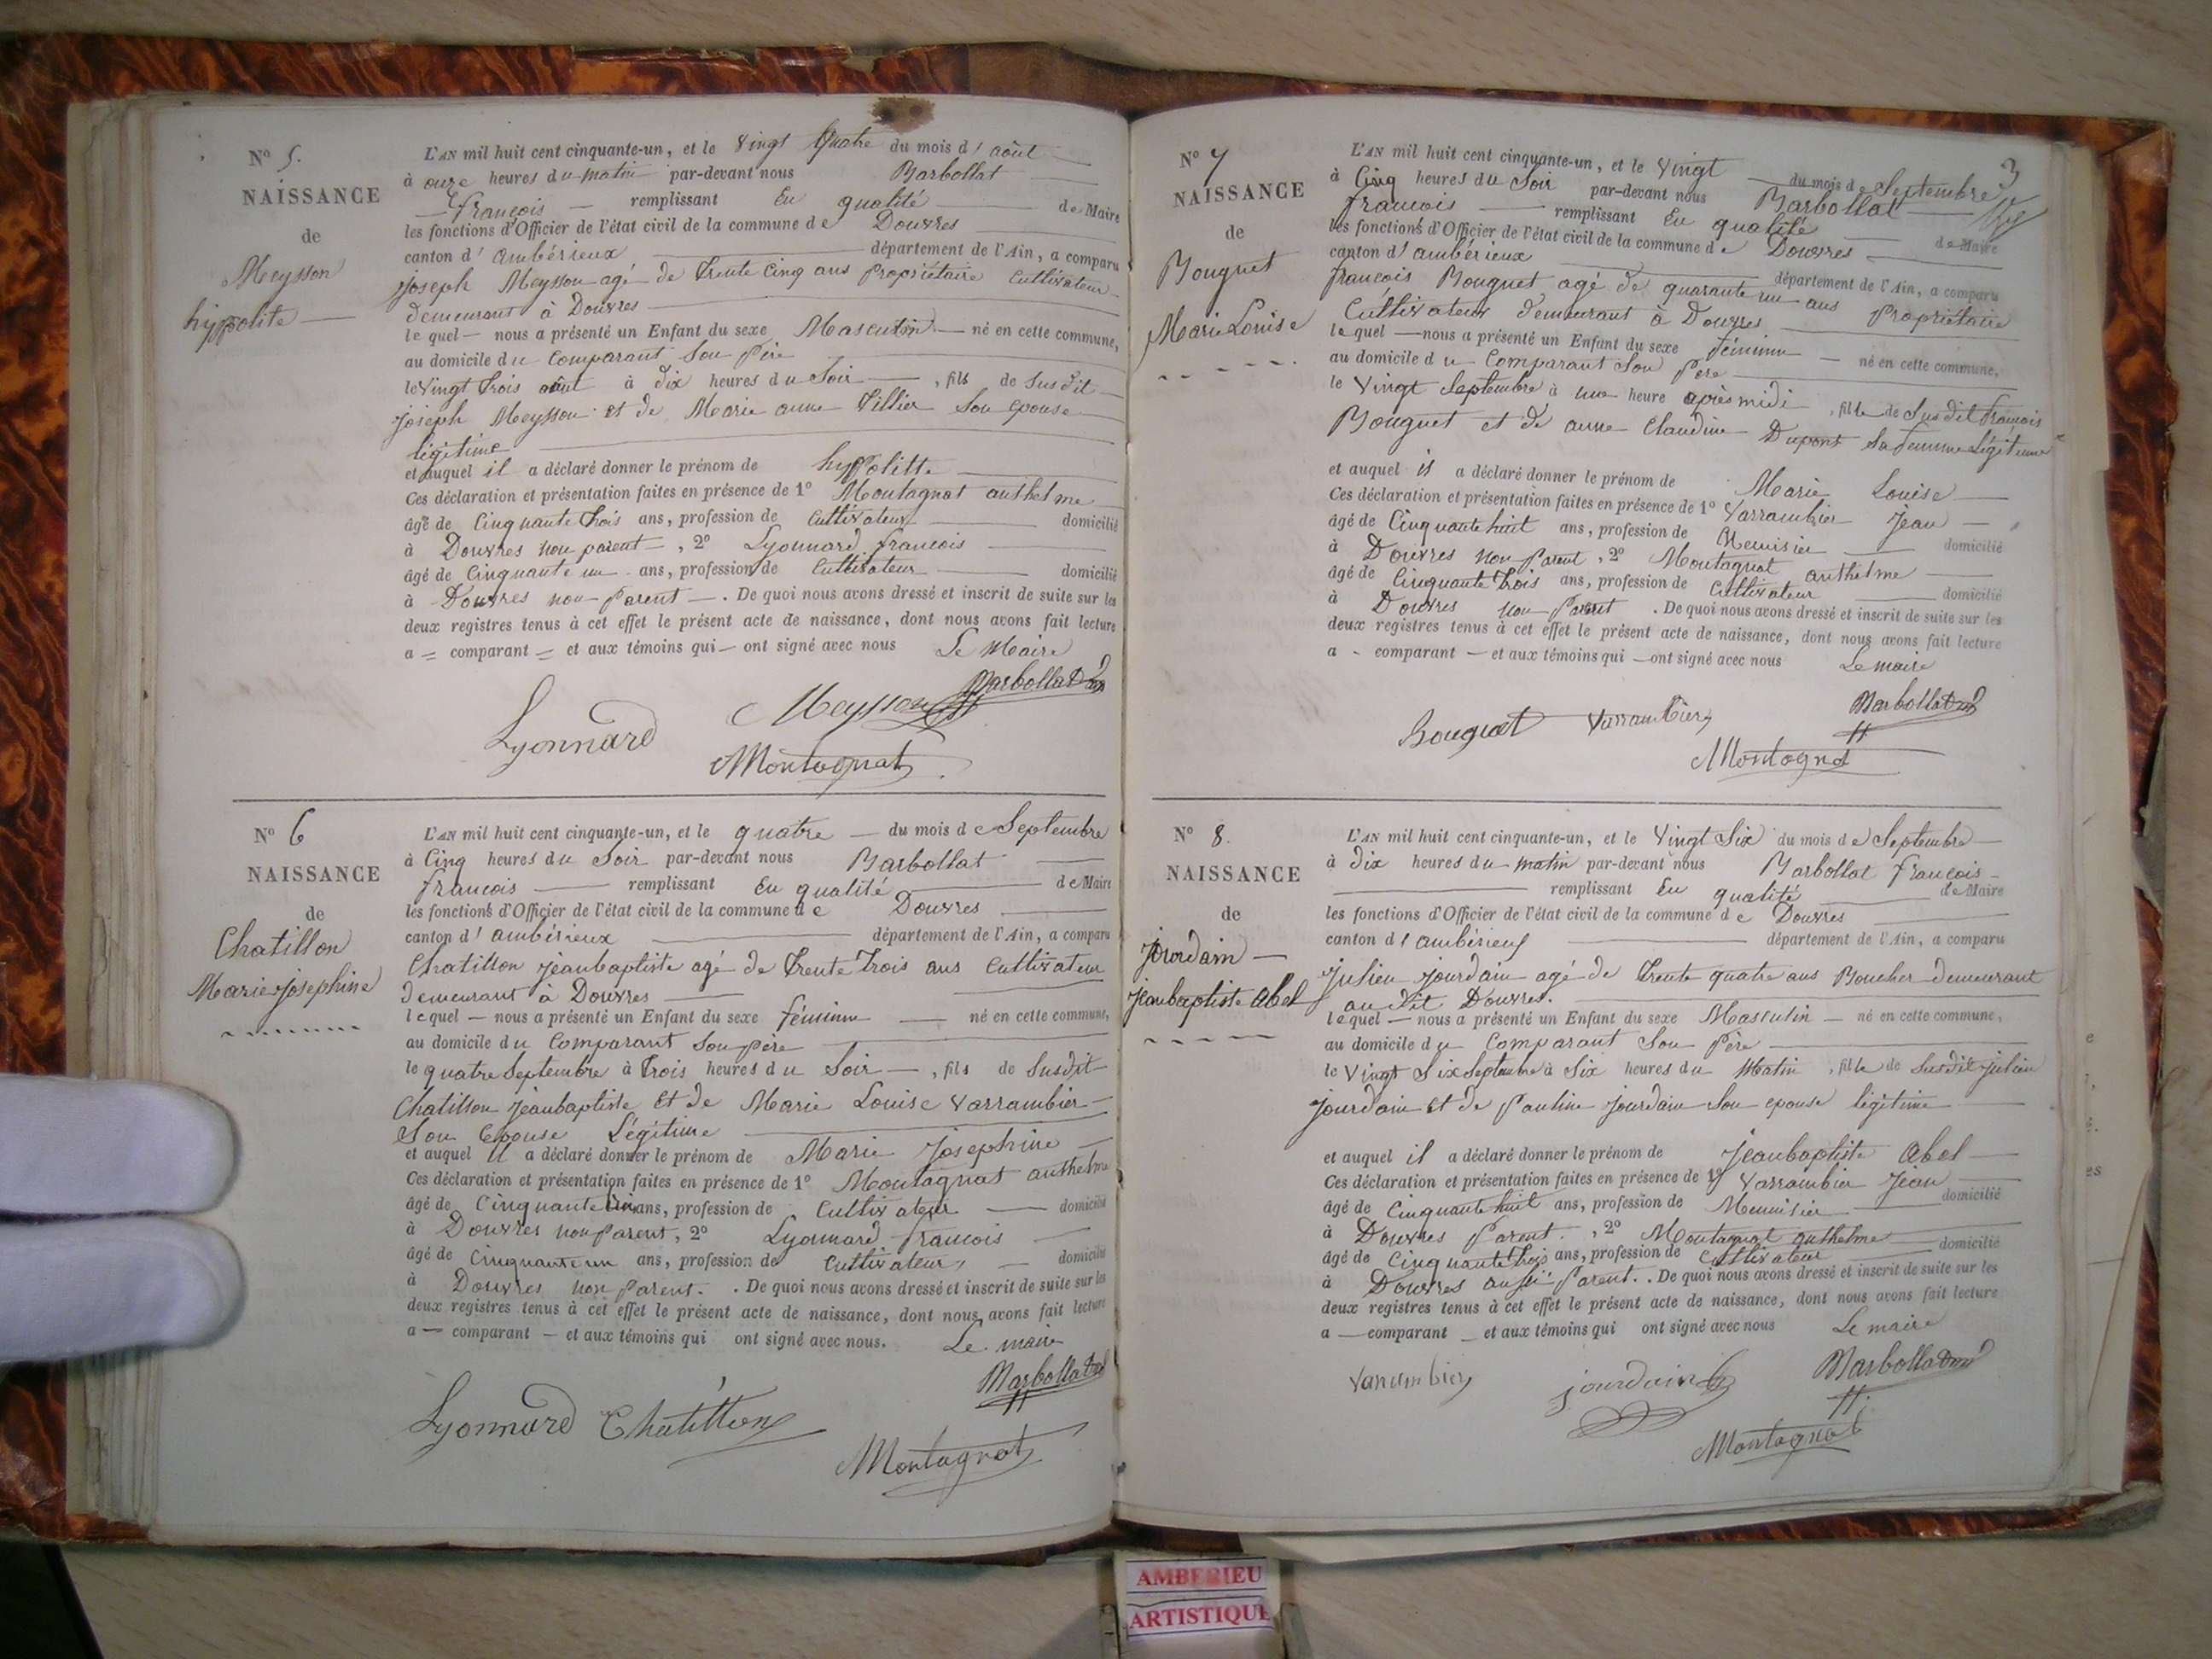 N° 5.
NAISSANCE
de
Meysson
hyppolite
L'AN mil huit cent cinquante-un, et le Vingt Quatre du mois d'août
à onze heures du matin par-devant nous Barbollat
françois remplissant En qualité de Maire
les fonctions d'Officier de l'état civil de la commune de Douvres
canton d'ambérieux département de l'Ain, a comparu
joseph Meysson agé de trente Cinq ans Propriétaire Cultivateur
demeurant à Douvres
lequel nous a présenté un Enfant du sexe Masculin né en cette commune,
au domicile du Comparant Son Père
le Vingt trois août à dix heures du Soir, fils de Susdit
joseph Meysson et de Marie anne Tillier Son epouse
légitime
et auquel il a déclaré donner le prénom de hyppolitte
Ces déclaration et présentation faites en présence de 1° Montagnat anthelme
âgé de Cinquante trois ans, profession de Cultivateur domicilié
à Douvres non parent, 2° Lyonnard françois
âgé de Cinquante un ans, profession de Cultivateur domicilié
à Douvres non Parent. De quoi nous avons dressé et inscrit de suite sur les
deux registres tenus à cet effet le présent acte de naissance, dont nous avons fait lecture
a = comparant = et aux témoins qui ont signé avec nous Le Maire
Barbollat
Lyonnard Meysson
Montagnat
N° 6
NAISSANCE
de
Chatillon
Marie josephine
L'AN mil huit cent cinquante-un, et le quatre du mois de Septembre
à Cinq heures du Soir par-devant nous Barbollat
françois remplissant En qualité de Maire
les fonctions d'Officier de l'état civil de la commune de Douvres
canton d'ambérieux département de l'Ain, a comparu
Chatillon jeanbaptiste agé de trente trois ans Cultivateur
demeurant à Douvres
lequel nous a présenté un Enfant du sexe féminin né en cette commune,
au domicile du Comparant Son père
le quatre Septembre à trois heures du Soir, fils de Susdit
Chatillon jeanbaptiste et de Marie Louise Varrambier
Son Epouse Légitime
et auquel il a déclaré donner le prénom de Marie josephine
Ces déclaration et présentation faites en présence de 1° Montagnat anthelme
âgé de Cinquante trois ans, profession de Cultivateur domicilié
à Douvres non Parent, 2° Lyonnard francois
âgé de Cinquante un ans, profession de Cultivateur domicilié
à Douvres non Parent. De quoi nous avons dressé et inscrit de suite sur les
deux registres tenus à cet effet le présent acte de naissance, dont nous avons fait lecture
a comparant et aux témoins qui ont signé avec nous. Le maire
Barbollat
Lyonnard Chatillon
Montagnat
3
N° 7
NAISSANCE
de
Bouguet
Marie Louise
L'AN mil huit cent cinquante-un, et le Vingt du mois de Septembre
à Cinq heures du Soir par-devant nous Barbollat
francois remplissant En qualité de Maire
les fonctions d'Officier de l'état civil de la commune de Douvres
canton d'ambérieux département de l'Ain, a comparu
françois Bouguet agé de quarante un ans Propriétaire
Cultivateur demeurant à Douvres
lequel nous a présenté un Enfant du sexe féminin né en cette commune,
au domicile du Comparant Son Père
le Vingt Septembre à une heure après midi, fille de Susdit françois
Bouguet et de anne Claudine Dupont Sa femme Légitime
et auquel il a déclaré donner le prénom de Marie Louise
Ces déclaration et présentation faites en présence de 1° Varrambier Jean
âgé de Cinquante huit ans, profession de Menuisier domicilié
à Douvres non Parent, 2° Montagnat anthelme
âgé de Cinquante trois ans, profession de Cultivateur domicilié
à Douvres non Parent. De quoi nous avons dressé et inscrit de suite sur les
deux registres tenus à cet effet le présent acte de naissance, dont nous avons fait lecture
a comparant et aux témoins qui ont signé avec nous Le maire
Bouguet Varrambier Barbollat
Montagnat
N° 8.
NAISSANCE
de
jourdain
jeanbaptiste abel
L'AN mil huit cent cinquante-un, et le Vingt Six du mois de Septembre
à dix heures du matin par-devant nous Barbollat françois
remplissant En qualité de Maire
les fonctions d'Officier de l'état civil de la commune de Douvres
canton d'ambérieux département de l'Ain, a comparu
julien jourdain agé de trente quatre ans Boucher demeurant
au dit Douvres.
lequel nous a présenté un Enfant du sexe Masculin né en cette commune,
au domicile du Comparant Son Père
le Vingt Six Septembre à Six heures du Matin, fille de Susdit julien
jourdain et de Pauline jourdain Son epouse légitime
et auquel il a déclaré donner le prénom de jeanbaptiste abel
Ces déclaration et présentation faites en présence de 1° Varrambier jean
âgé de Cinquante huit ans, profession de Menuisier domicilié
à Douvres Parent., 2° Montagnat anthelme
âgé de Cinquante trois ans, profession de Cultivateur domicilié
à Douvres aussi Parent. De quoi nous avons dressé et inscrit de suite sur les
deux registres tenus à cet effet le présent acte de naissance, dont nous avons fait lecture
a comparant et aux témoins qui ont signé avec nous Le maire
Varrambier jourdain Barbollat
Montagnat
AMBERIEU
ARTISTIQUE